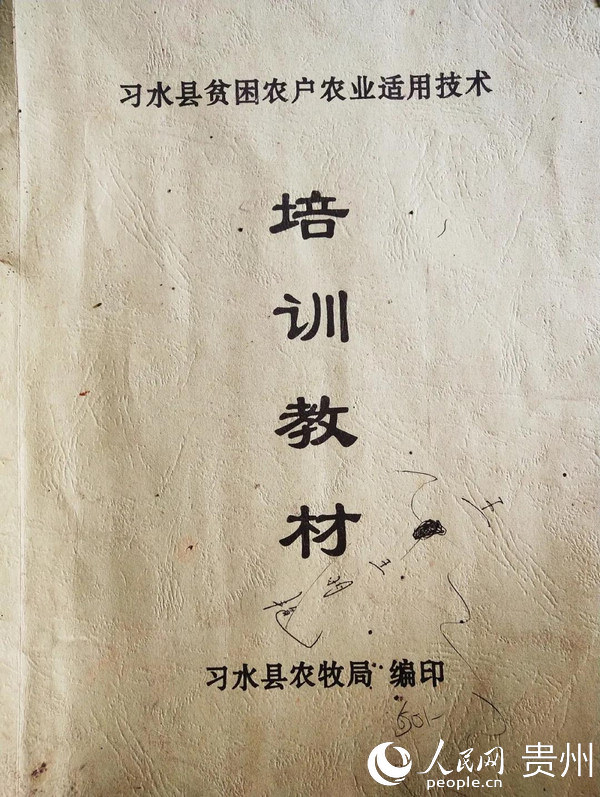 习水县贫困农户农业适用技术
培
训
教
材
习水县农牧局 编印
人民网 贵州
people.cn